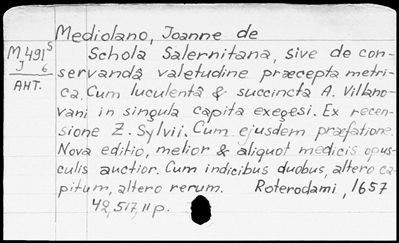 Mediolano, Joanne de
M491s
J 6
ANT.
Schola Salernitana, sive de con-
servandâ valetudine præcepta metri-
ca. Cum luculentâ & succincta A. Villano-
vani in singula capita exegesi. Ex recen-
sione Z. Sylvii. Cum ejusdem præfatione.
Nova editio, melior & aliquot medicis opus-
culis auctior. Cum indicibus duobus, altero ca-
pitum, altero rerum. Roterodami, 1657
42, 517, 11 p.